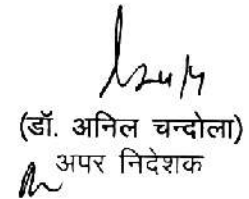 (डॉ. अनिल चन्दोला)
अपर निदेशक